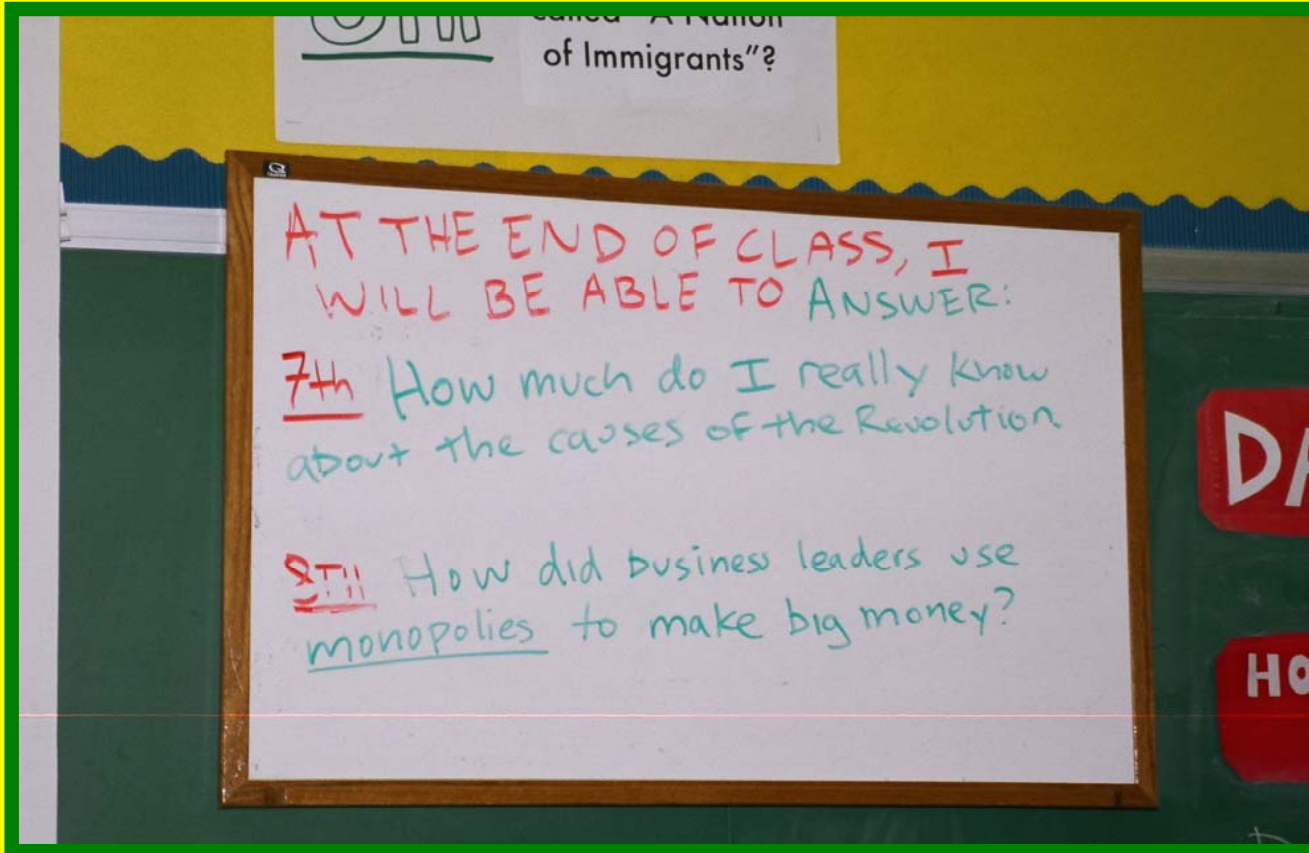 8TH
called "A Nation
of Immigrants"?
AT THE END OF CLASS, I
WILL BE ABLE TO ANSWER:
7th How much do I really know
about the causes of the Revolution
8TH How did business leaders use
monopolies to make big money?
DA
HO